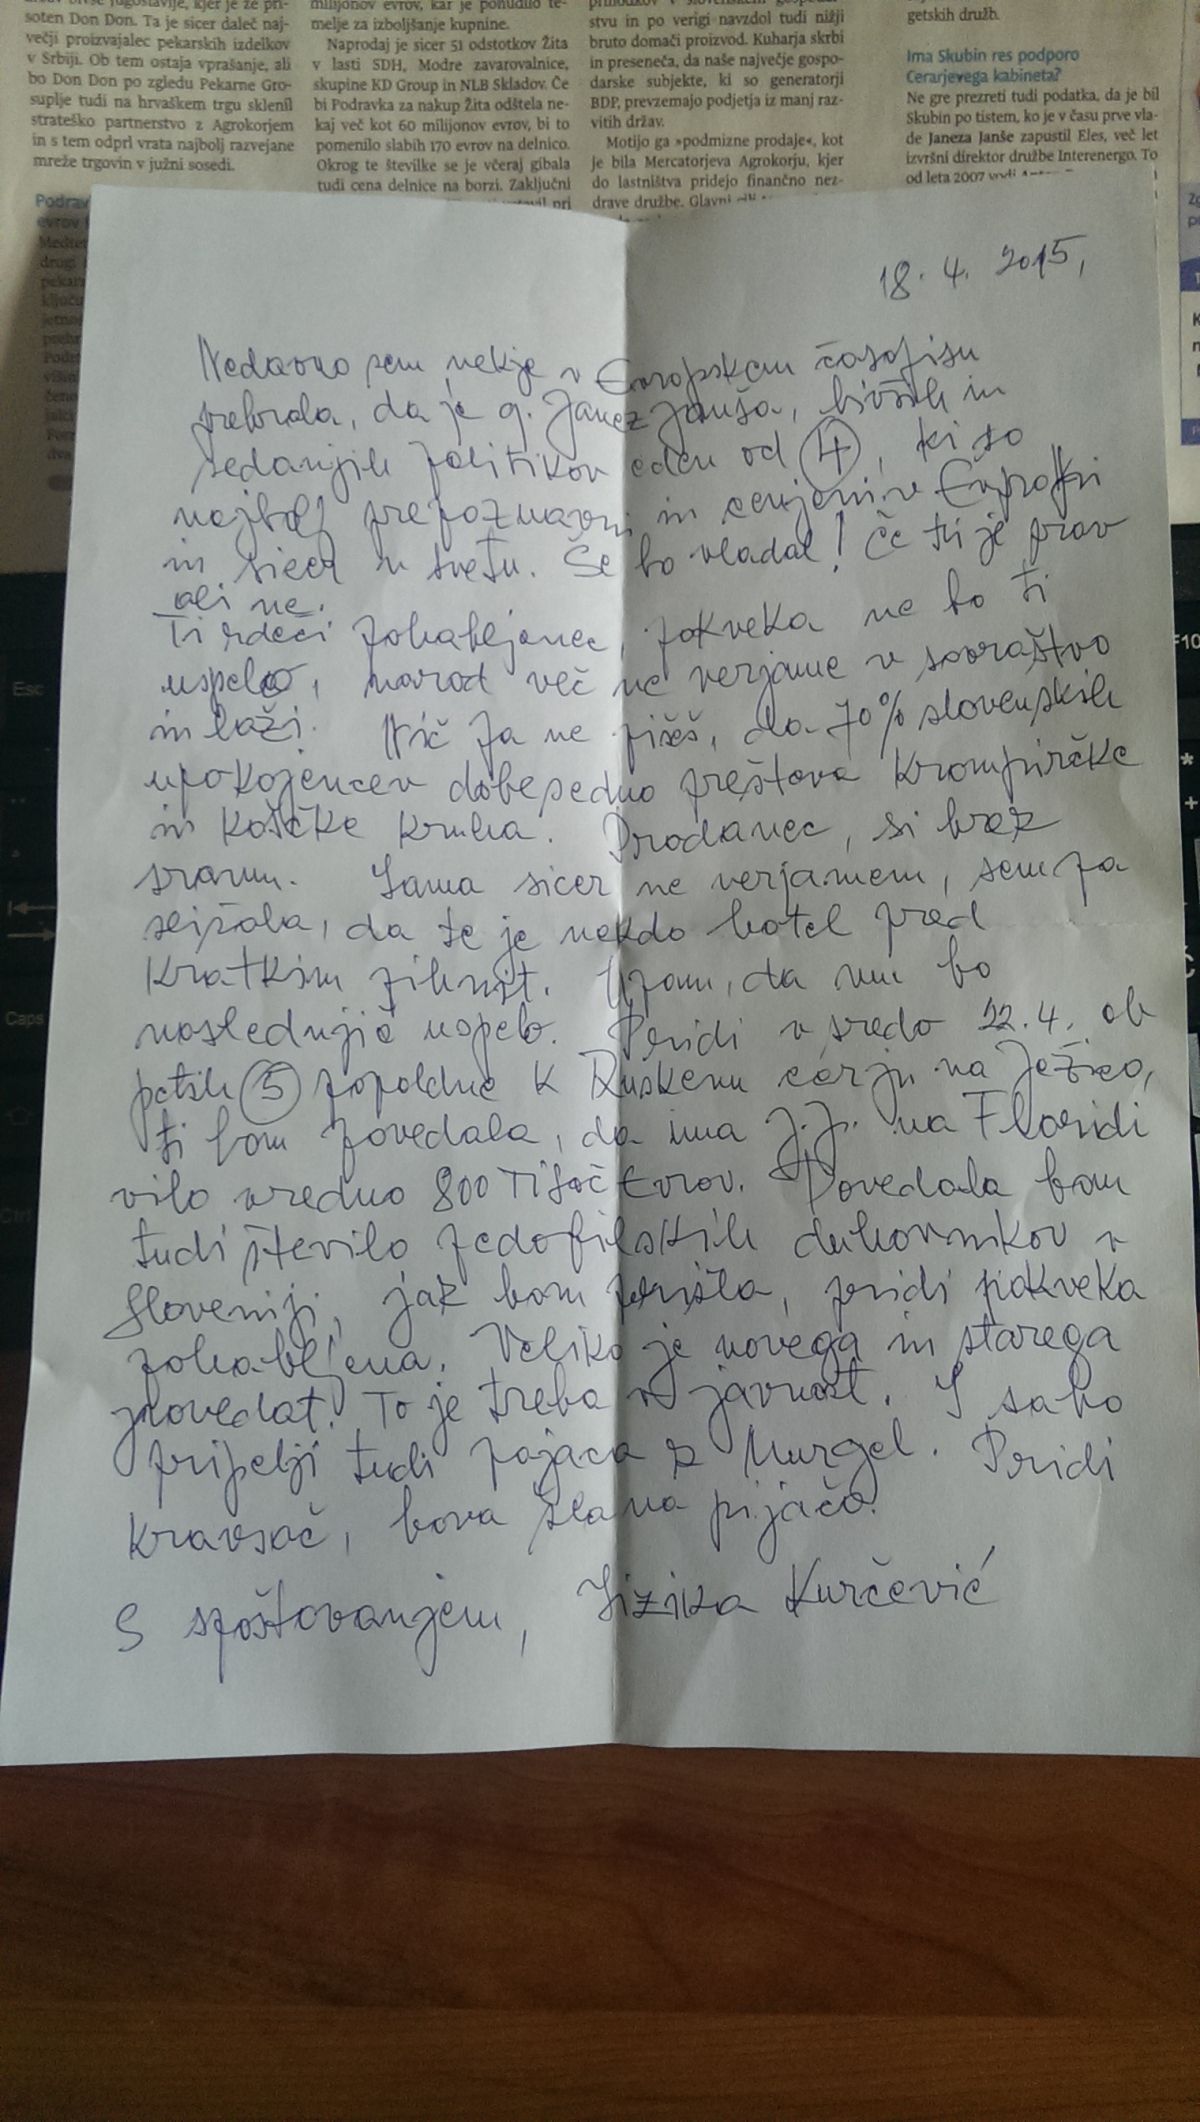 soten Don Don. Ta je sicer daleč naj-
večji proizvajalec pekarskih izdelkov
v Srbiji. Ob tem ostaja vprašanje, ali
bo Don Don po zgledu Pekarne Gro-
suplje tudi na hrvaškem trgu sklenil
strateško partnerstvo z Agrokorjem
in s tem odprl vrata najbolj razvejane
mreže trgovin v južni sosedi.
Podrav
evrov
drugi
pekar
ključu
milijonov evrov, kar je ponudilo te-
melje za izboljšanje kupnine.
Naprodaj je sicer 51 odstotkov Žita
v lasti SDH, Modre zavarovalnice,
skupine KD Group in NLB Skladov. Če
bi Podravka za nakup Žita odštela ne-
kaj več kot 60 milijonov evrov, bi to
pomenilo slabih 170 evrov na delnico.
Okrog te številke se je včeraj gibala
tudi cena delnice na borzi. Zaključni
stvu in po verigi navzdol tudi nižji
bruto domači proizvod. Kuharja skrbi
in preseneča, da naše največje gospo-
darske subjekte, ki so generatorji
BDP, prevzemajo podjetja iz manj raz-
vitih držav.
Motijo ga »podmizne prodaje«, kot
je bila Mercatorjeva Agrokorju, kjer
do lastništva pridejo finančno nez-
drave družbe. Glavni
getskih družb.
Ima Skubin res podporo
Cerarjevega kabineta?
Ne gre prezreti tudi podatka, da je bil
Skubin po tistem, ko je v času prve vla-
de Janeza Janše zapustil Eles, več let
izvršni direktor družbe Interenergo. To
od leta 2007 vodi
18. 4. 2015,
Nedavno sem nekje v Evropskem časopisu
prebrala, da je g. Janez Janša, bivših in
sedanjih politikov eden od 4, ki so
najbolj prepoznavni in cenjeni v Evropi
in sicer v svetu. Še bo vladal! Če ti je prav
ali ne.
Ti rdeči pohabljenec, pokveka ne bo ti
uspelo, narod več ne verjame v sovraštvo
in laži. Nič pa ne pišeš, da 70% slovenskih
upokojencev dobesedno prešteva krompirčke
in koščke kruha. Prodanec, si brez
sramu. Sama sicer ne verjamem, sem pa
slišala, da te je nekdo hotel pred
kratkim pihnit. Upam, da mu bo
naslednjič uspelo. Pridi v sredo 22.4. ob
petih 5 popoldne k Ruskemu carju na Ježico,
ti bom povedala, da ima J.J. na Floridi
vilo vredno 800 Tisoč Evrov. Povedala bom
tudi število pedofilskih duhovnikov v
Sloveniji, jaz bom prišla, pridi pokveka
pohabljena. Veliko je novega in starega
povedat. To je treba v javnost. S sabo
pripelji tudi pajaca z Murgel. Pridi
Kravsač, bova šla na pijačo.
S spoštovanjem, Kurčević
Esc
Caps
F10
*
+